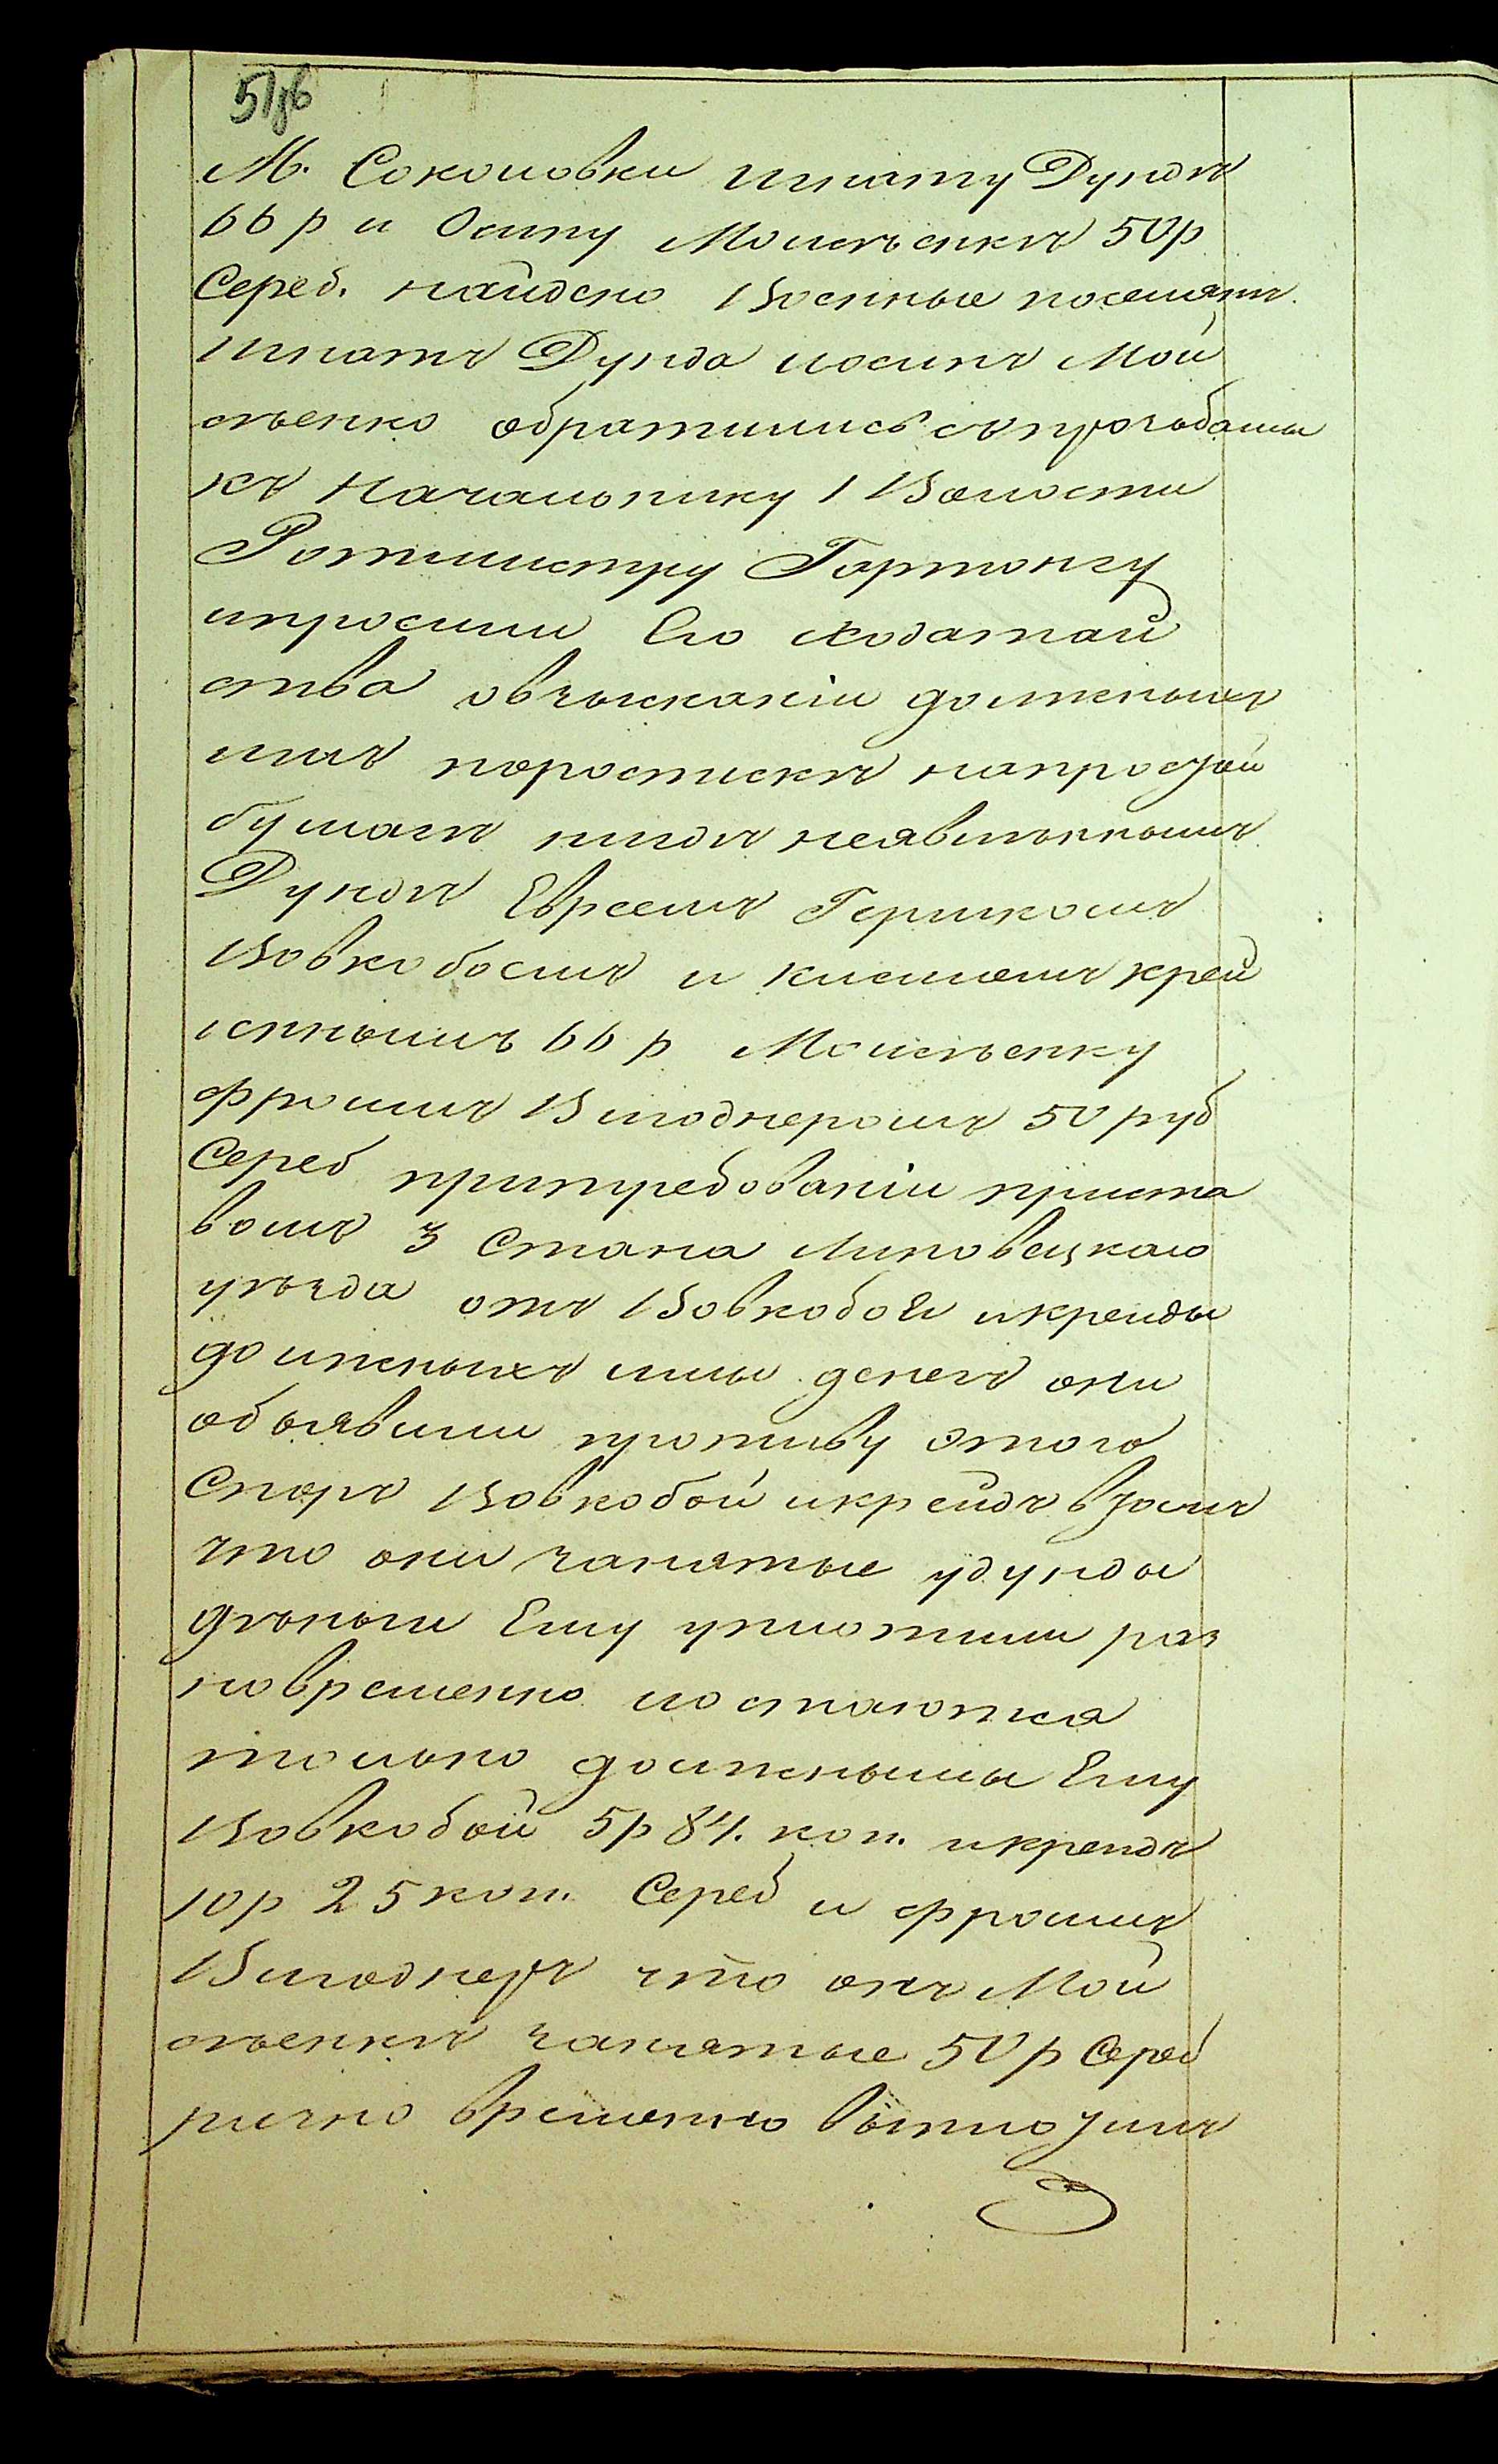 51об
М. Соколовки Игнату Дундѣ
66 р и Осипу Мойсѣенкѣ 50р
Сереб. найдено Военные поселяне
Игнатъ Дунда иосипъ Мой
сѣенко обратились съ прозьбами
къ Начальнику 1 Волости
Ротмистру Гартонгу
ипросили Его ходатай
ства овзысканіи должныхъ
имъ поростискѣ напростой
бумагѣ нигдѣ неявленнымъ
Дундѣ Евреемъ Гершкомъ
Вовкобоемъ и Кисилемъ Крей
денымъ 66 р Мойсѣенку
Фроимъ Вигоднеромъ 50 руб
Сереб притребованіи приста
вомъ 3 Стана Липовецкаго
уѣзда отъ Вовкобоя икрейды
должныхъ ими денегъ они
объявили противу этого
Споръ Вовкобой икрейда втомъ
что они занятые удунды
дѣньги Ему уплотили раз
новременно иостаются
только должными Ему
Вовкобой 5р 84. коп. икрейда
10р 25 коп. Сереб и Фроимъ
Вигоднеръ что онъ Мой
сѣенкѣ занятые 50р Сереб
рично временно выплотилъ